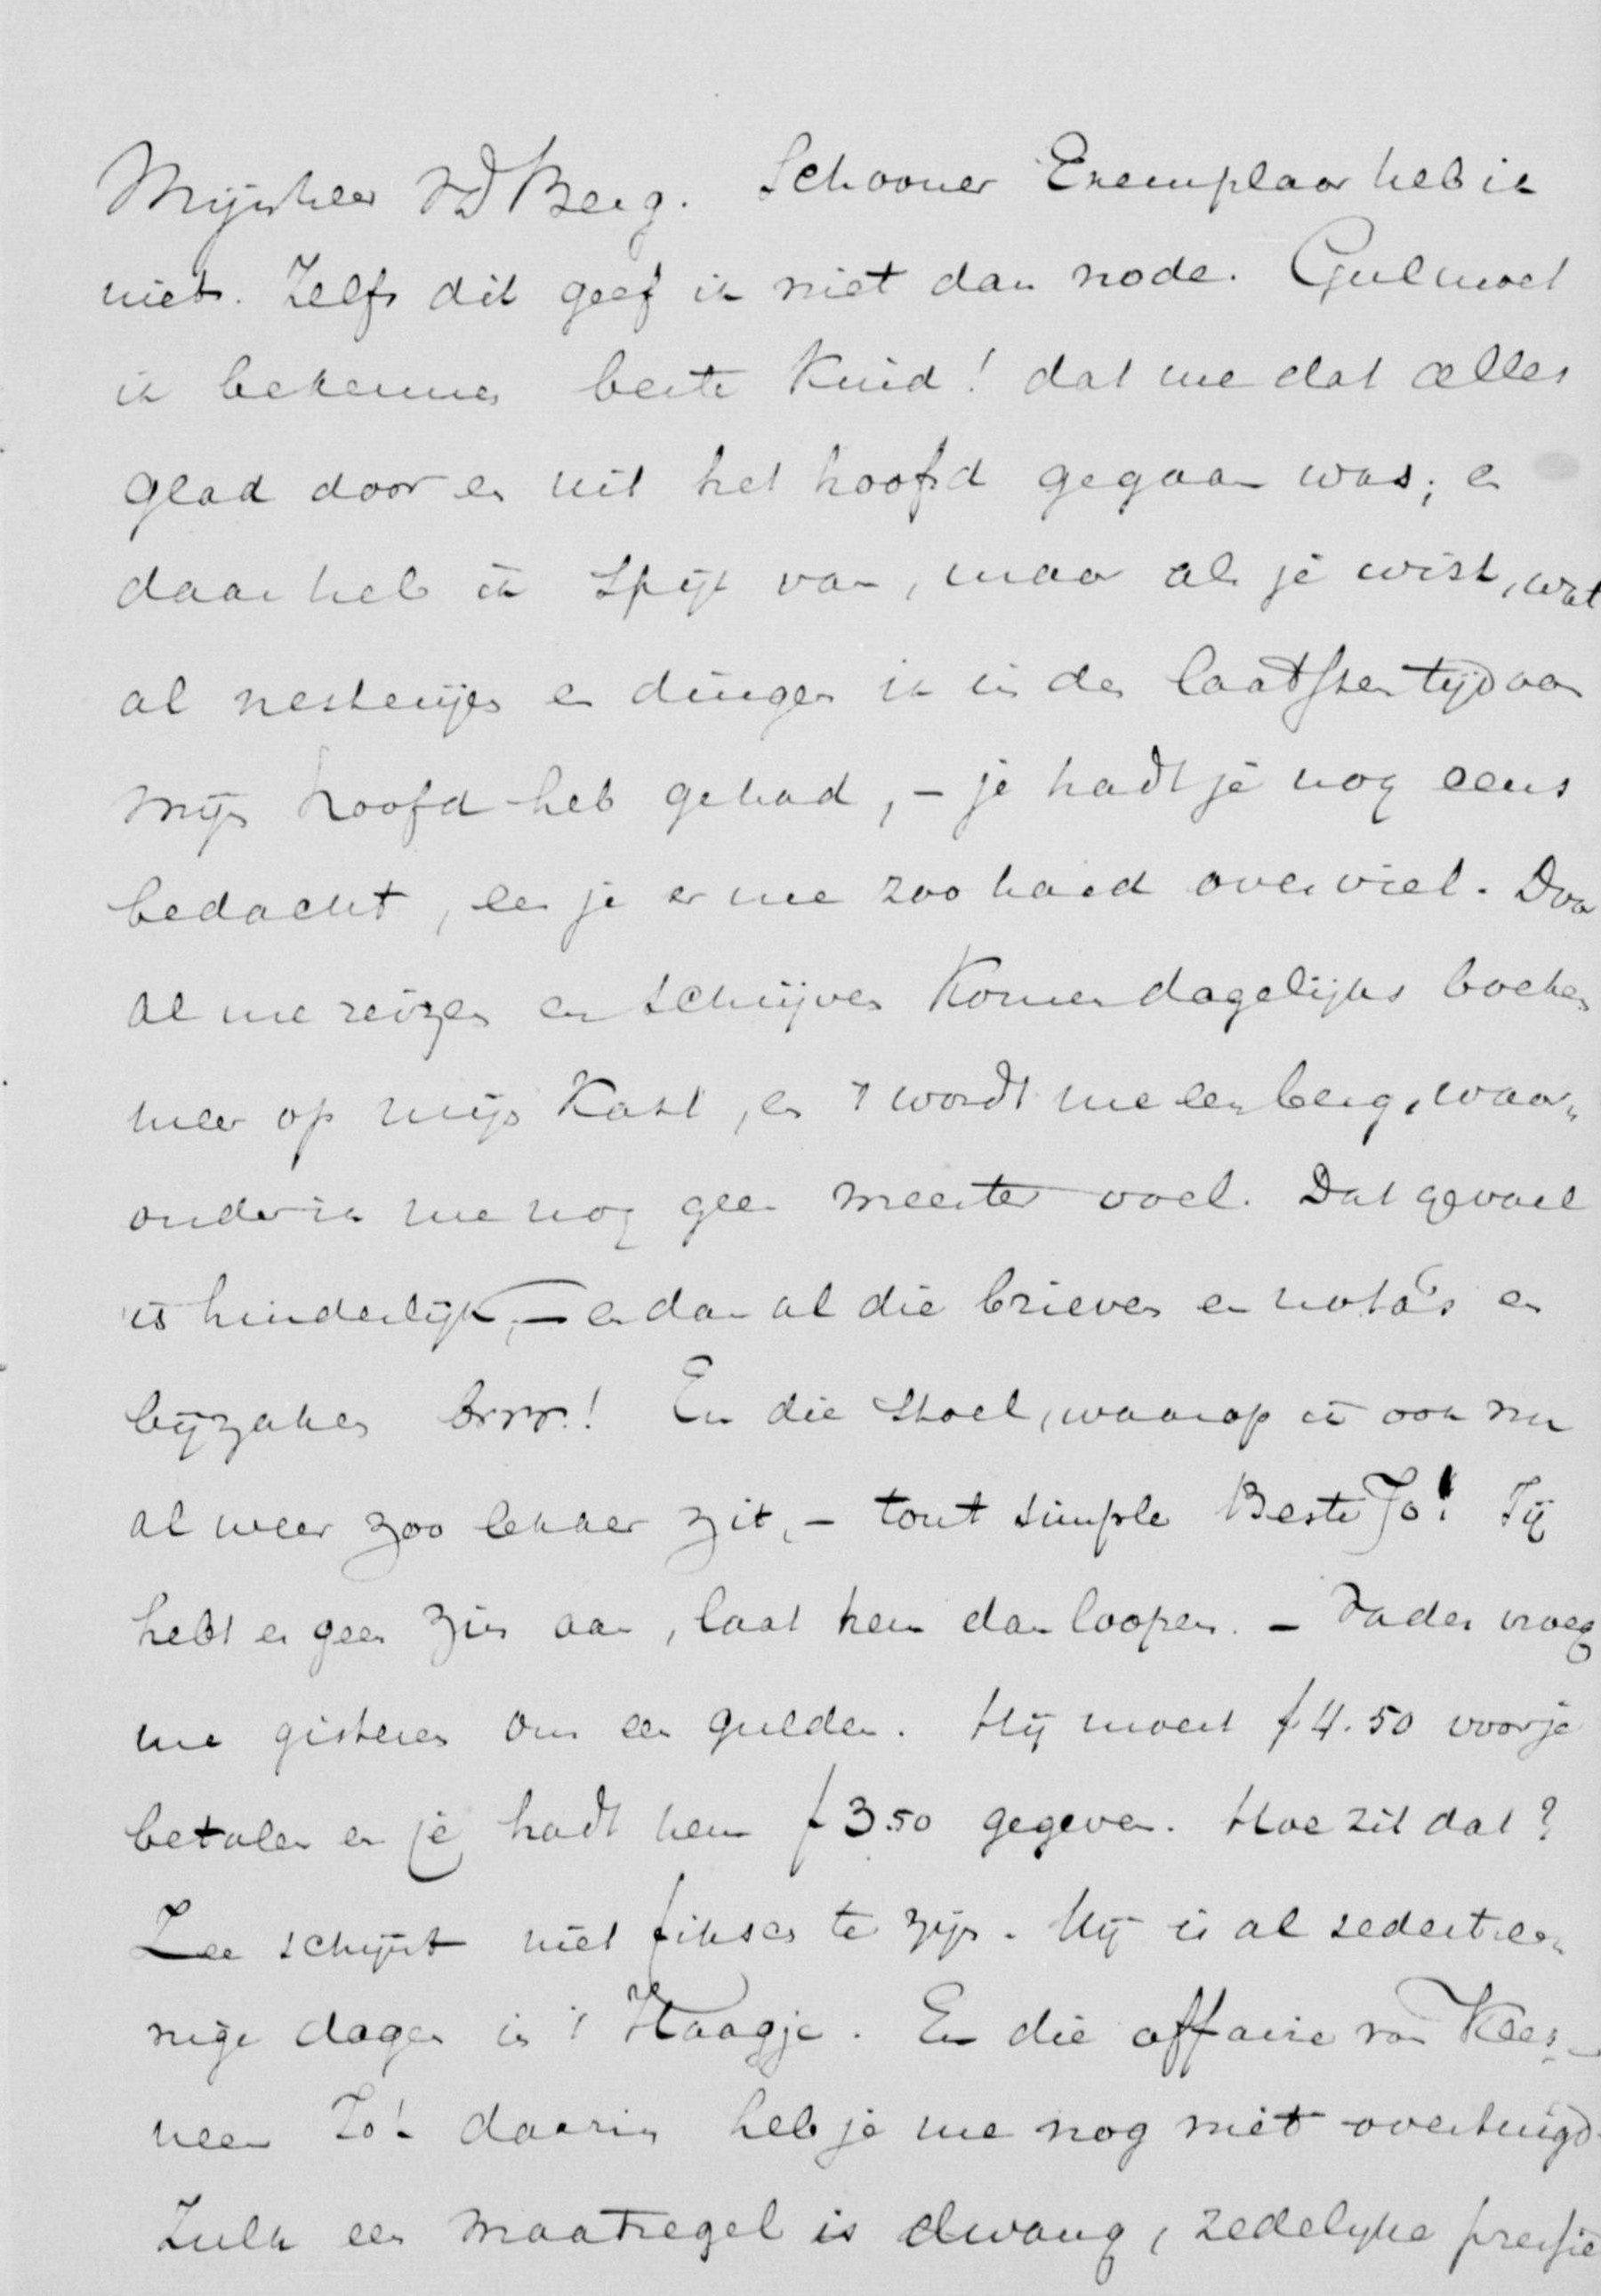 Mijnheer vd Berg. Schooner Exemplaar heb ik
niet. Zelfs dit geef ik niet dan node. Gul moet
ik bekennen beste Kind! dat me dat alles
glad door en uit het hoofd gegaan was; en
daar heb ik spijt van, maar als je wist, wat
al nesterijen en dingen ik in den laatsten tijd aan
mijn hoofd heb gehad, – je hadt je nog eens
bedacht, en je er me zoo hard over viel. Door
al me reizen en schrijven Komen dagelijks boeken
meer op mijn Kast, en 't wordt me een berg, waar„
onder ik me nog geen meester voel. Dat gevoel
is hinderlijk, – en dan al die brieven en nota's en
bijzaken brrr.! En die stoel, waarop ik ook nu
al weer zoo lekker zit, – tout simple Beste Jo! Jij
hebt er geen zin aan, laat hem dan loopen. – Vader vroeg
me gisteren om een gulden. Hij moest f 4.50 voor je
betalen en je hadt hem f 3.50 gegeven. Hoe zit dat?
Zee schijnt niet fiksch te zijn. Hij is al sedert ee„
nige dagen in 't Haagje. En die affaire van Kees –
neen Jo! daarin heb je me nog niet overtuigd.
Zulk een maatregel is dwang, zedelijke pressie